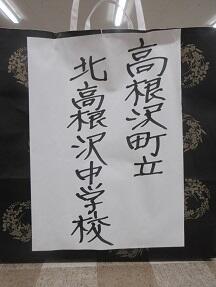 高根沢町立
北高根沢中学校